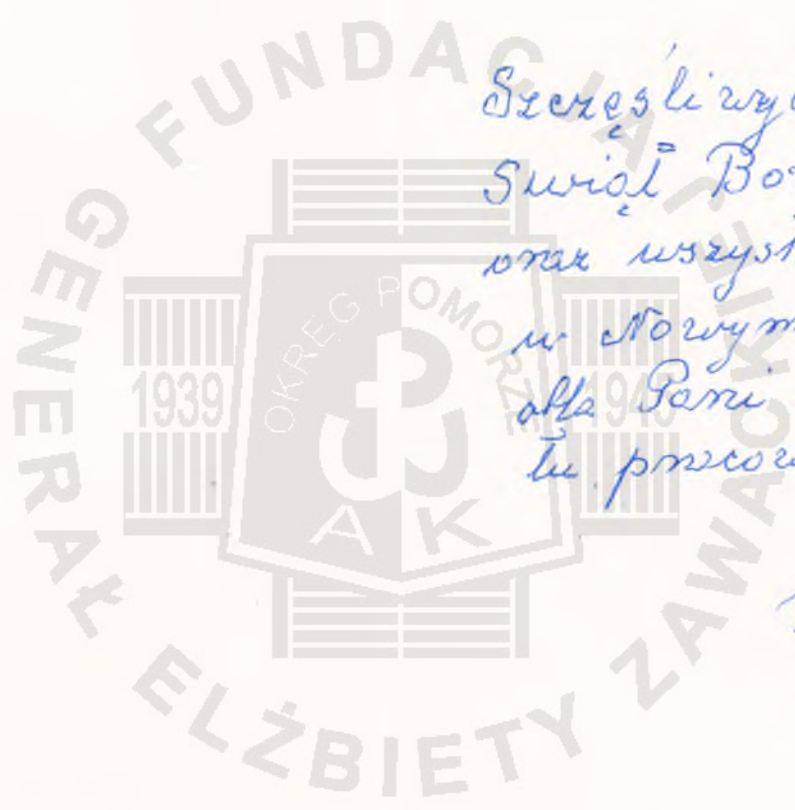 FUNDACJA GENERAŁ ELŻBIETY ZAWACKIEJ
OKRĘG POMORZE
1939
1945
AK
Szczęśliwy
Świąt Bo
oraz wszyst
w Nowym
dla Pani
tu pracow